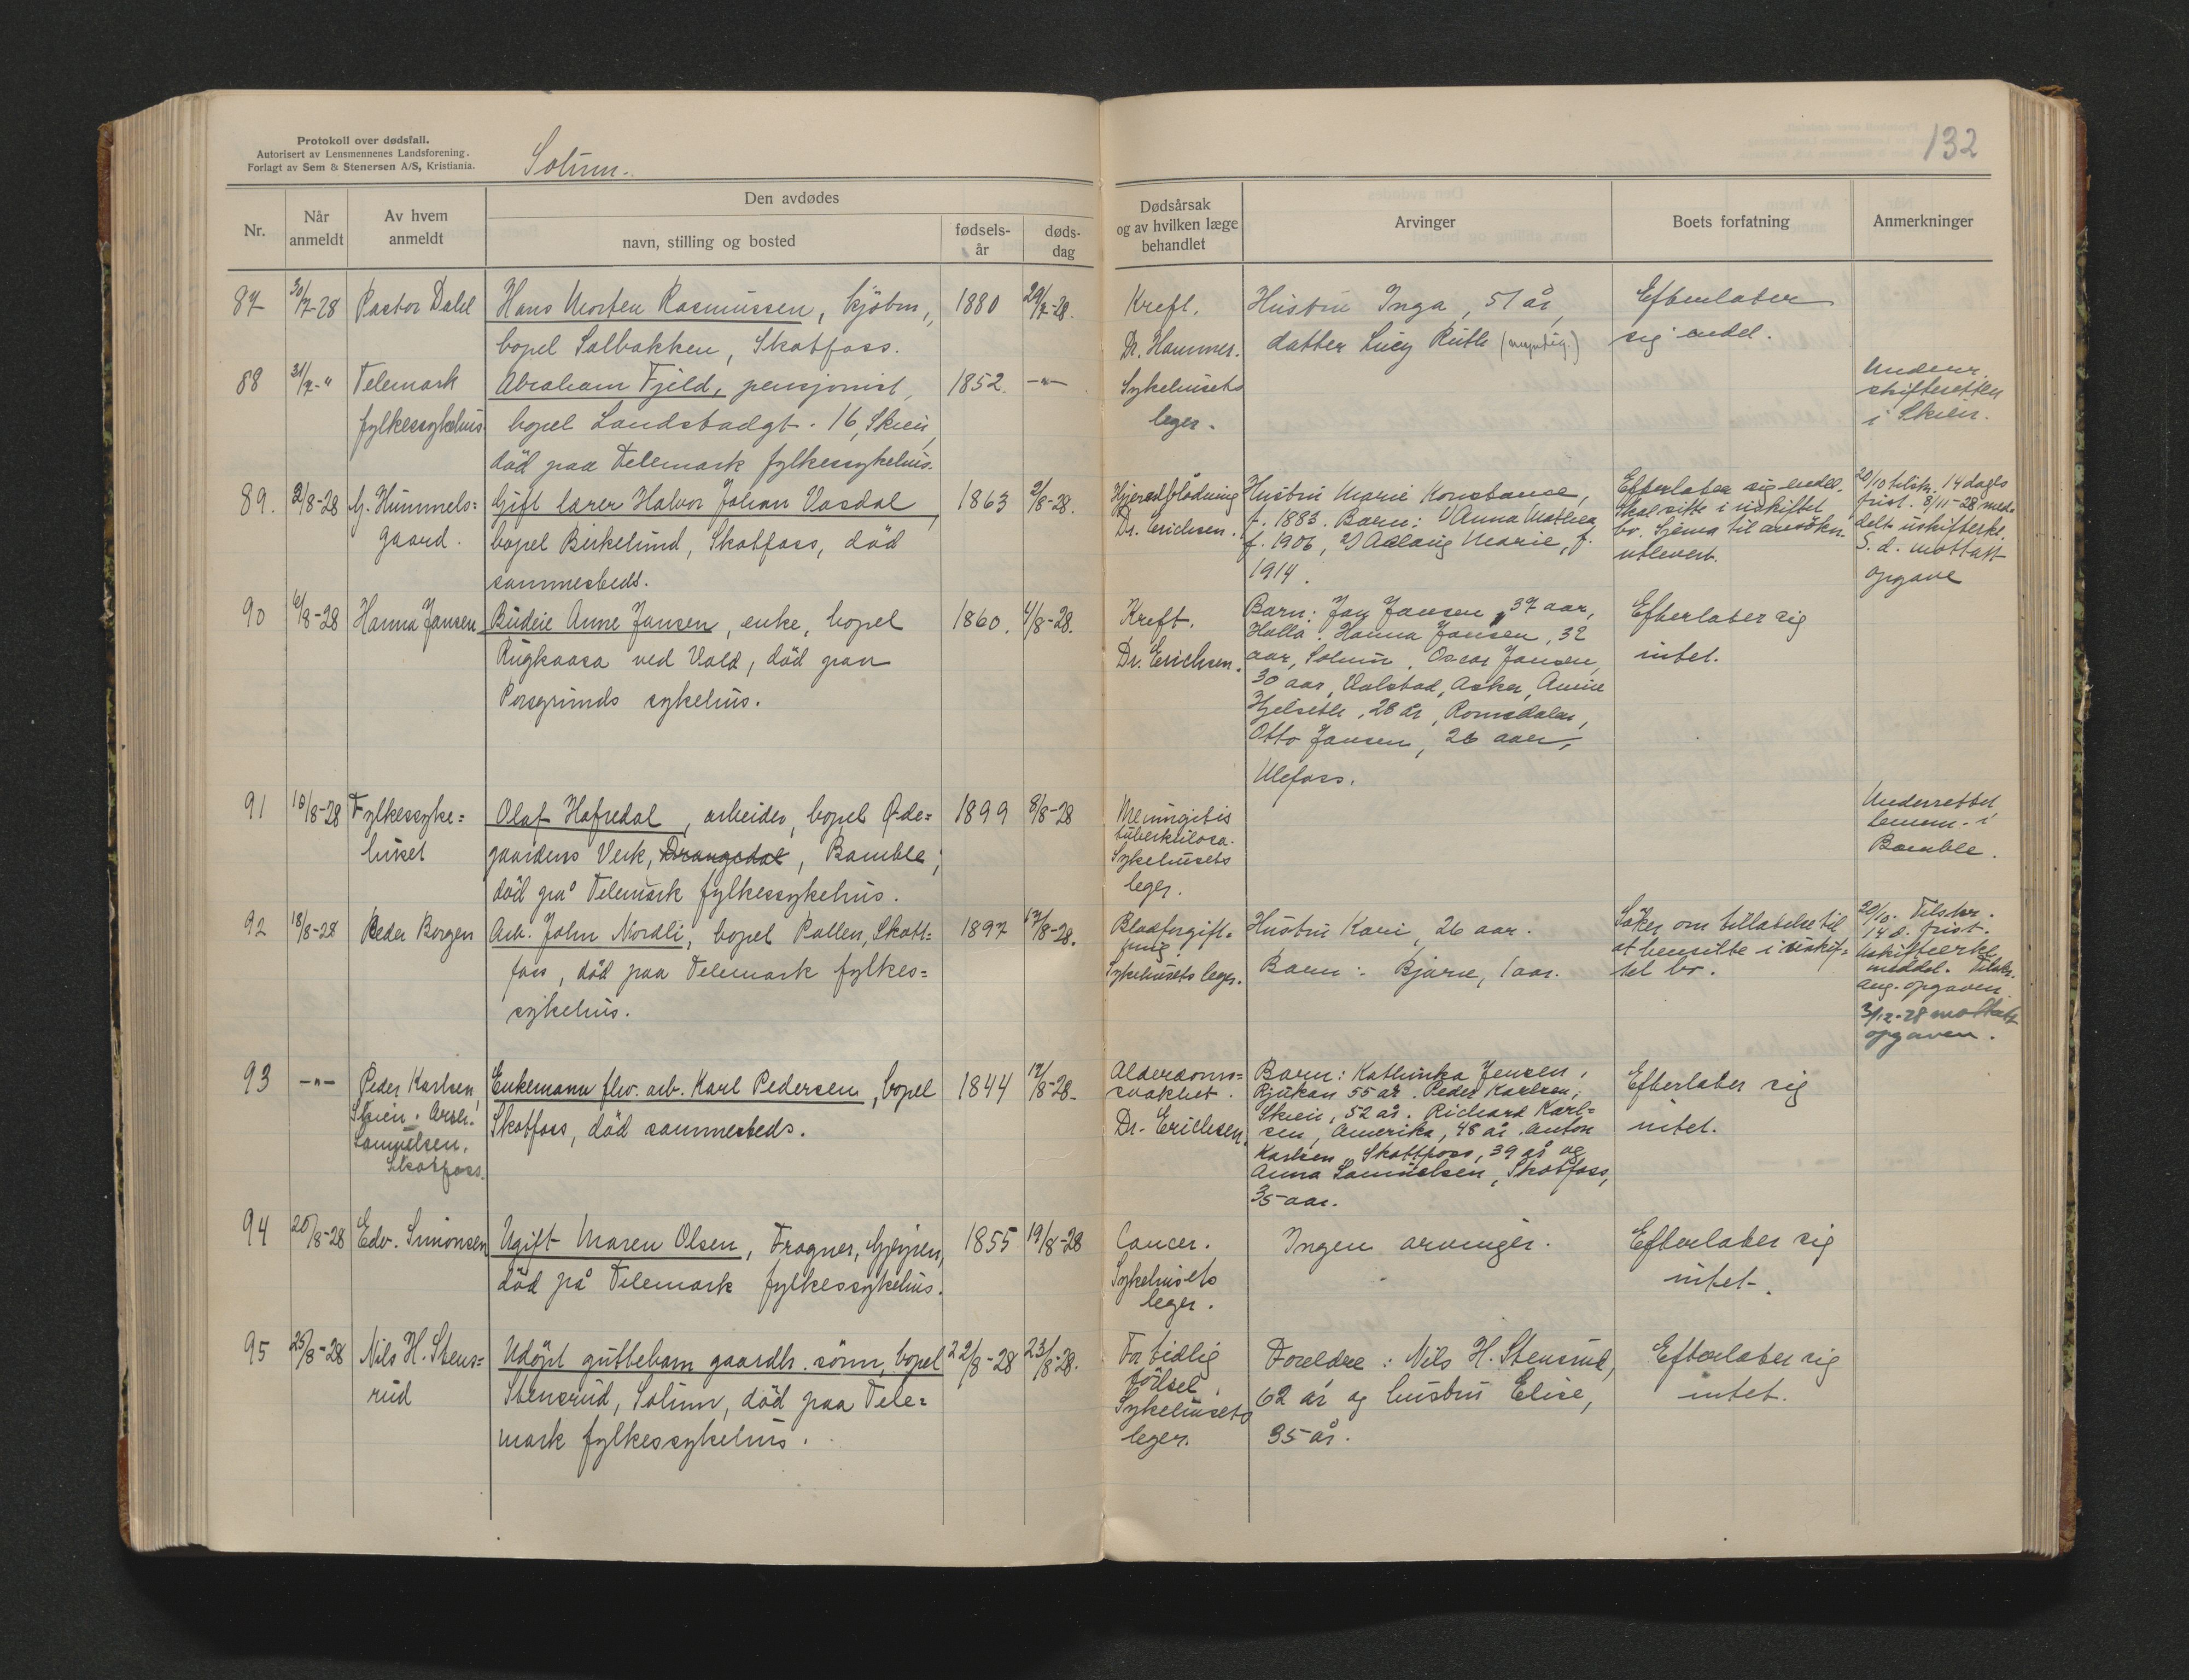 Protokoll over dødsfall.
Autorisert av Lensmennenes Landsforening.
Forlagt av Sem & Stenersen A/S, Kristiania.
Solum.
132
Nr.
Når
anmeldt
Av hvem
anmeldt
Den avdødes
navn, stilling og bosted
fødsels-
år
døds-
dag
Dødsårsak
og av hvilken læge
behandlet
Arvinger
Boets forfatning
Anmerkninger
87
30/7-28
Pastor Dahl
Hans Morten Rasmussen, kjöbm.,
bopel Solbakken, Skotfoss.
1880
29/7-28.
Kreft.
Dr. Hammer.
Hustru Inga, 51 år,
datter Lucy Ruth (myndig.)
Efterlater
sig endel.
88
31/7-"
Telemark
fylkessykehus
Abraham Fjeld, pensjonist,
bopel Landstadgt. 16, Skien,
död paa Telemark fylkessykehus.
1852.
-"-
Sykehusets
leger.
Underr.
skifteretten
i Skien.
89.
2/8-28
G. Hummels=
gaard.
Gift lærer Halvor Johan Vasdal,
bopel Birkelund, Skotfoss, död
sammesteds.
1863
2/8-28.
Hjerneblödning
Dr. Erichsen.
Hustru Marie Konstance,
f. 1883. Barn: 1) Anna Mathea
f. 1906, 2) Aslaug Marie, f.
1914.
Efterlater sig endel.
Skal sitte i uskiftet
bo. Sjema til ansökn.
utlevert.
20/10 tilskr. 14 dagers
frist. 8/11-28 med=
delt uskifteerkl.
S. d. mottatt
opgave
90
6/8-28
Hanna Jansen
Budeie Anne Jansen, enke, bopel
Rugkaasa ved Vold, död paa
Porsgrunds sykehus.
1860.
4/8-28.
Kreft.
Dr. Erichsen.
Barn: Jan Jansen, 37 aar,
Holla. Hanna Jansen, 32
aar, Solum, Oscar Jansen,
30 aar, Valstad, Asker, Anne
Hjelseth, 28 år, Romsdalen,
Otto Jansen, 26 aar,
Ulefoss.
Efterlater sig
intet.
91
10/8-28
Fylkessyke=
huset
Olaf Hafredal, arbeider, bopel Øde=
gaardens Verk, Drangedal, Bamble,
död på Telemark fylkessykehus.
1899
8/8-28
Meningitis
tuberkulosa.
Sykehusets
leger.
Underrettet
lensm. i
Bamble.
92
18/8-28
Peder Borgen
Arb. John Nordli, bopel Pollen, Skott=
foss, död paa Telemark fylkes=
sykehus.
1897
17/8-28.
Blodforgift=
ning.
Sykehusets leger.
Hustru Kari, 26 aar.
Barn: Bjarne, 1 aar.
Söker om tillatelse til
at hensitte i uskif=
tet bo.
20/10. Tilskr.
14 d. frist.
Uskifteerkl.
meddel. Tilskr.
ang. opgaven.
3/12-28 mottatt
opgaven.
93
-"-
Peder Karlsen,
Skien.
Samuelsen.
Skotfoss.
Enkemann fhv. arb. Karl Pedersen, bopel
Skotfoss, död sammesteds.
1844
17/8-28.
Alderdoms=
svakhet.
Dr. Erichsen.
Barn: Kathinka Jensen,
Rjukan 55 år. Peder Karlsen,
Skien, 52 år. Richard Karl=
sen, Amerika, 48 år. Anton
Karlsen, Skottfoss, 39 år og
Anna Samuelsen, Skotfoss,
35 aar.
Efterlater sig
intet.
94
20/8-28
Edv. Simonsen
Ugift Maren Olsen, Fragner, Gjerpen,
död på Telemark fylkessykehus.
1855
19/8-28
Cancer.
Sykehusets
leger.
Ingen arvinger.
Efterlater sig
intet.
95
25/8-28
Nils H. Stens=
rud
Udöpt guttebarn gaardbr. sönn, bopel
Stensrud, Solum, död paa Tele=
mark fylkessykehus.
22/8-28
23/8-28.
For tidlig
födsel.
Sykehusets
leger.
Foreldre: Nils H. Stensrud,
62 år og hustru Elise,
35 år.
Efterlater sig
intet.